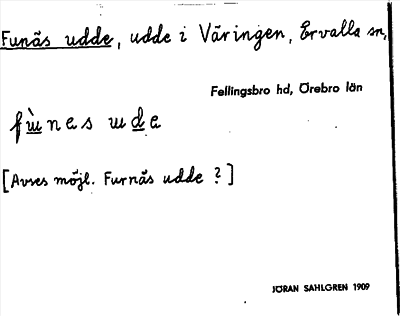 Funäs udde, udde i Väringen, Ervalla sn,
Fellingsbro hd, Örebro län
fɯ̀nes ɯde
[Avses möjl. Furnäs udde ?]
JÖRAN SAHLGREN 1909